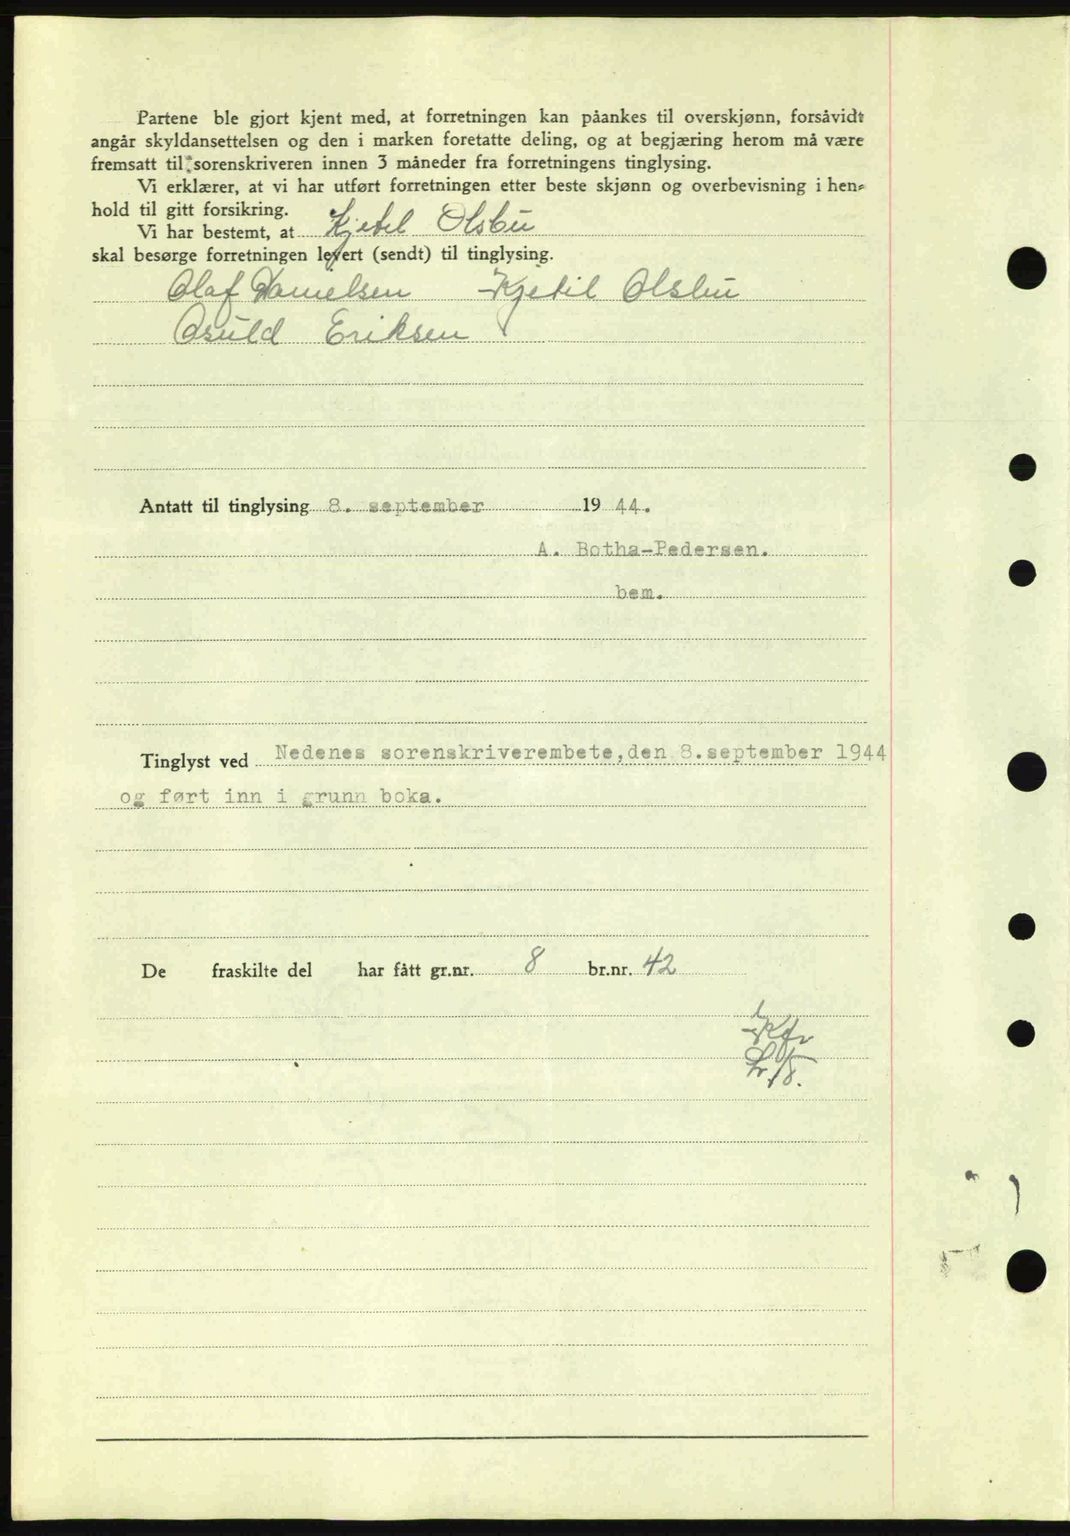 Partene ble gjort kjent med, at forretningen kan påankes til overskjønn, forsåvidt
angår skyldansettelsen og den i marken foretatte deling, og at begjæring herom må være
fremsatt til sorenskriveren innen 3 måneder fra forretningens tinglysing.
Vi erklærer, at vi har utført forretningen etter beste skjønn og overbevisning i hen-
hold til gitt forsikring.
Vi har bestemt, at Kjetil Olsbu
skal besørge forretningen levert (sendt) til tinglysing.
Olaf Danielsen Kjetil Olsbu
Osuld Eriksen
Antatt til tinglysing 8. september 1944.
A. Botha-Pedersen.
bem.
Tinglyst ved Nedenes sorenskriverembete, den 8. september 1944
og ført inn i grunn boka.
De fraskilte del har fått gr.nr. 8 br.nr. 42